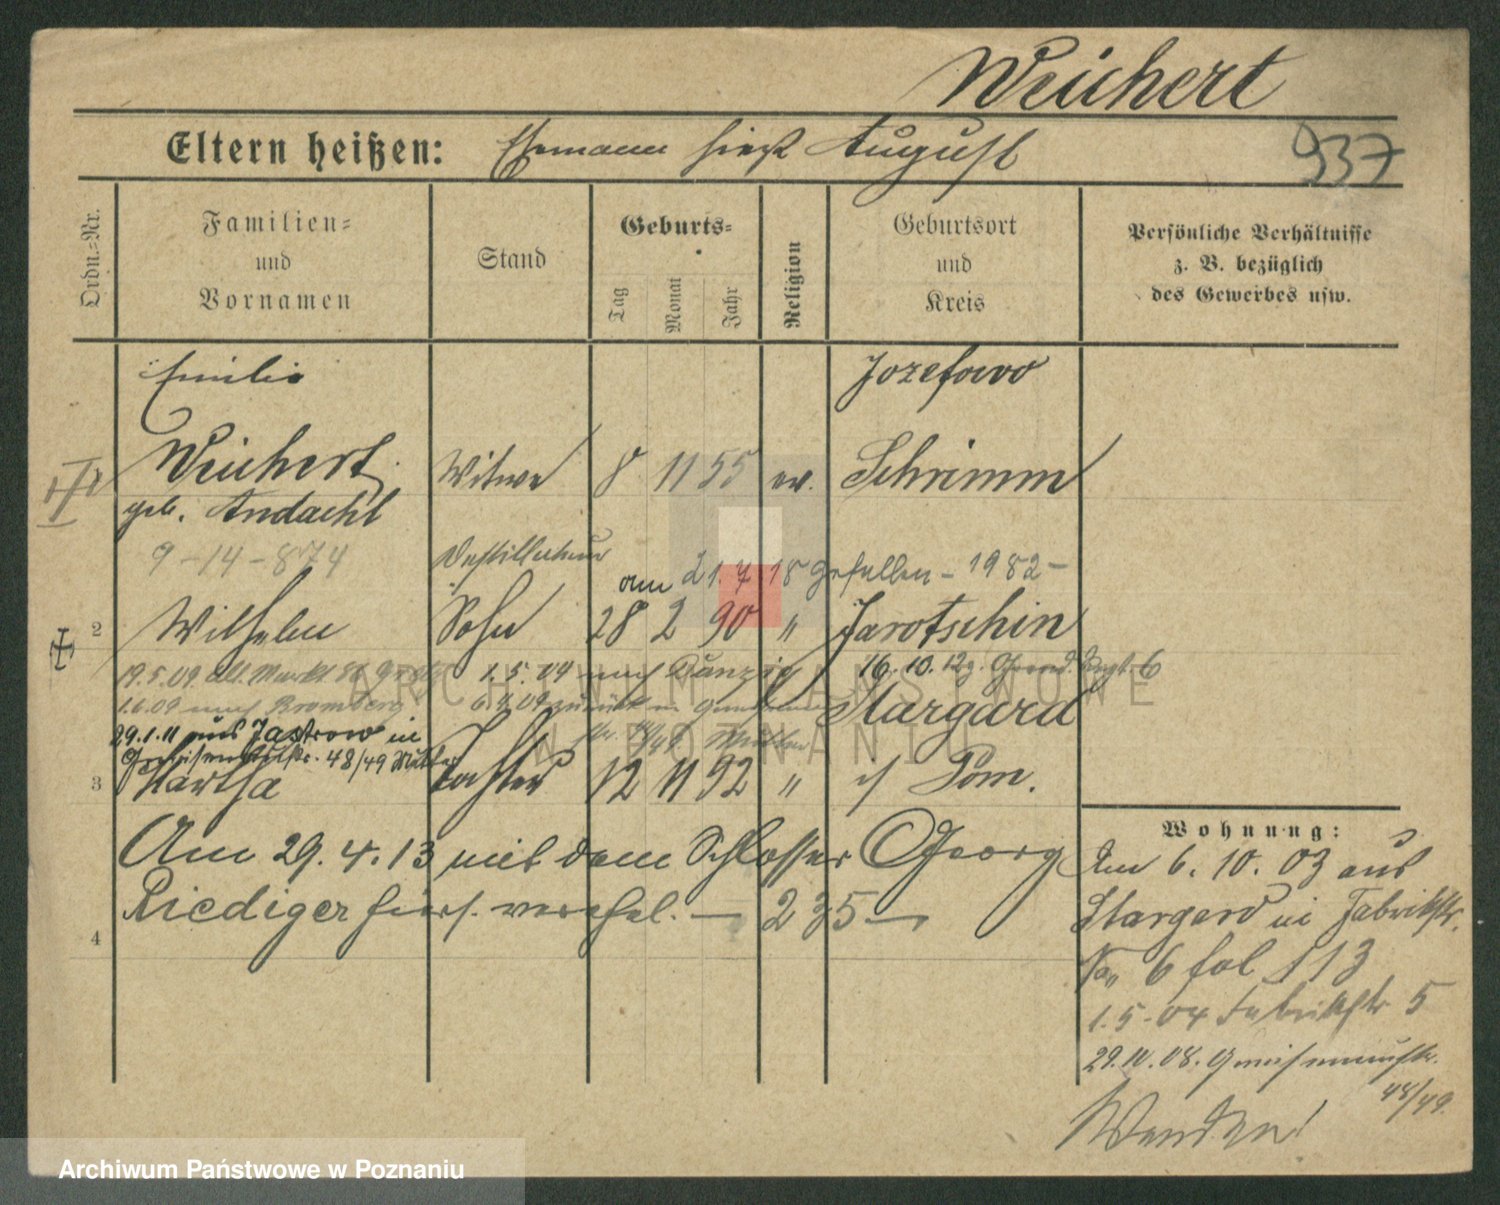 Weichert
Eltern heißen: Ehemann hieß August
937
Ordn.=Nr.
Familien=
und
Vornamen
Stand
Geburts=
Tag
Monat
Jahr
Religion
Geburtsort
und
Kreis
Persönliche Verhältnisse
z. B. bezüglich
des Gewerbes usw.
Emilie
Jozefowo
Weichert Witwe 8 11 55 ev. Schrimm
geb. Andacht
9-14-874
Destillateur
am 21.7.18 gefallen - 1982 -
2 Wilhelm Sohn 28 2 90 " Jarotschin
19.5.09 Alt. Markt 86 1.5.04 nach Danzig 16.10.12 6
1.6.09 nach Bromberg zurück in
Stargard
29.1.11 aus Jastrow in
Gneisenaustr. 48/49 Mutter
3 Martha Tochter 12 11 92 " i/ Pom.
Am 29.4.13 mit dem Schlosser Georg
Riediger hiers. verehel. — 235 —
4
Wohnung:
Am 6.10.03 aus
Stargard in Fabrikstr.
No 6 fol 113
1.5.04 Fabrikstr 5
29.10.08. Gneisenaustr.
48/49.
Wenden!
ARCHIWUM PAŃSTWOWE
W POZNANIU
Archiwum Państwowe w Poznaniu